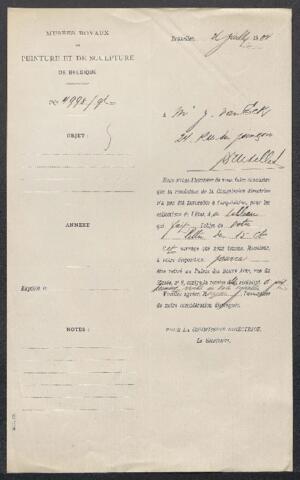 MUSÉES ROYAUX
DE
PEINTURE ET DE SCULPTURE
DE BELGIQUE
No 4998/
OBJET:
ANNEXE
Expédié le
NOTES:
Bruxelles, juillet
à Mr J. van Eeck
24 Rue
Bruxelles
Nous avons l'honneur de vous faire connaître
que la résolution de la Commission directrice
n'a pas été favorable à l'acquisition, pour les
collections de l'État, du tableau
qui fait l'objet de votre
lettre du 15 ct
cet ouvrage que nous tenons, Monsieur,
à votre disposition, pourra
être retiré au Palais des Beaux Arts, rue du
Musée, n° 9, contre la remise
Veuillez agréer, M l'assurance
de notre considération distinguée.
POUR LA COMMISSION DIRECTRICE,
Le Secrétaire,